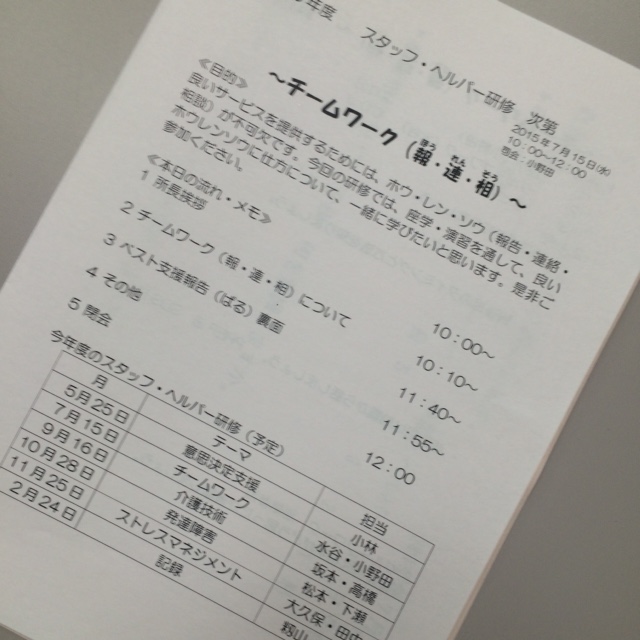 年度 スタッフ・ヘルパー研修 次第
2015年7月15日㈬
10:00～12:00
司会：小野田
～チームワーク（報・連・相）～
≪目的≫
良いサービスを提供するためには、ホウ・レン・ソウ（報告・連絡・
相談）が不可欠です。今回の研修では、座学・演習を通して、良い
ホウレンソウの仕方について、一緒に学びたいと思います。是非ご
参加ください。
≪本日の流れ・メモ≫
1 所長挨拶 10:00～
2 チームワーク（報・連・相）について 10:10～
3 ベスト支援報告（ぱる） 11:40～
4 その他 11:55～
5 閉会 12:00
今年度のスタッフ・ヘルパー研修（予定）
月 テーマ 担当
5月25日 意思決定支援 小林
7月15日 チームワーク 水谷・小野田
9月16日 介護技術 坂本・高橋
10月28日 発達障害 松本・下瀬
11月25日 ストレスマネジメント 大久保・田中
2月24日 記録